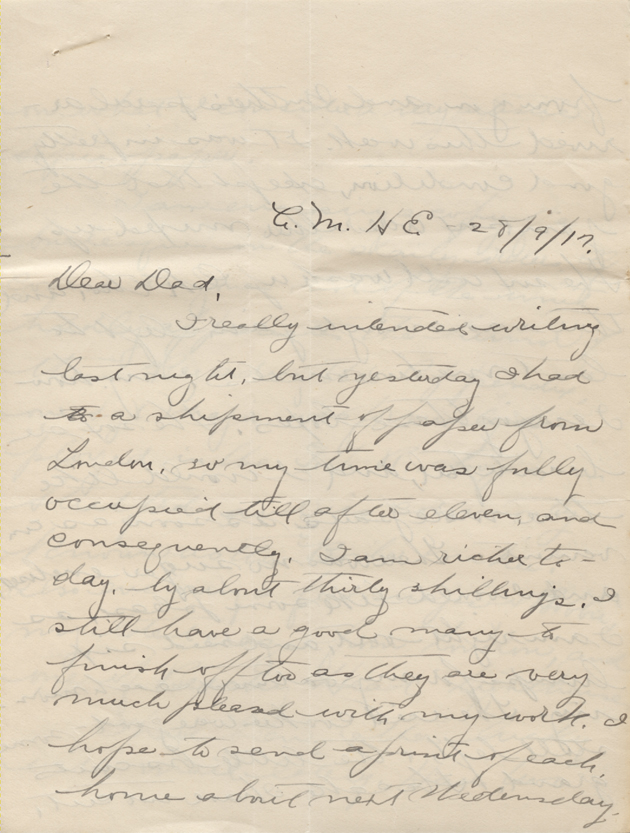 C. M. H E. 28/9/17.
Dear Dad,
I really intended writing
last night, but yesterday I had
a shipment of paper from
London, so my time was fully
occupied till after eleven, and
consequently, I am richer to-
day, by about thirty shillings. I
still have a good many to
finish off too as they are very
much pleased with my work. I
hope to send a print of each,
home about next Wedensday,